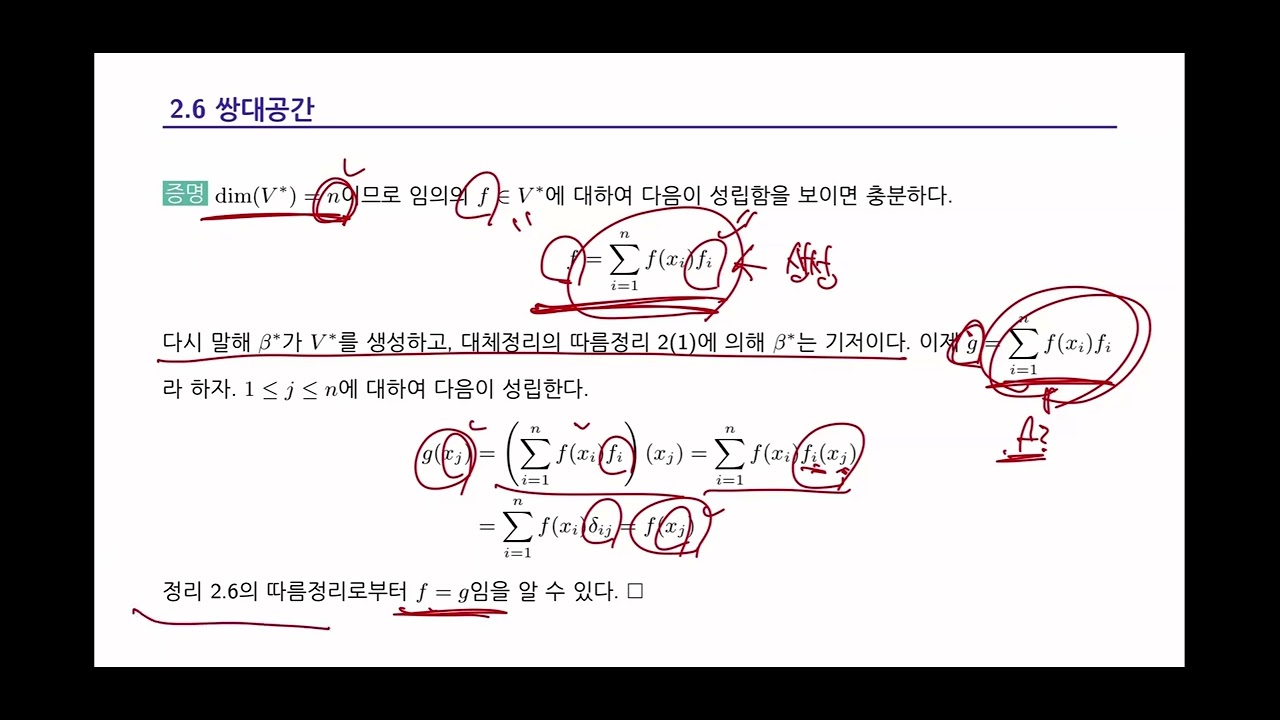 2.6 쌍대공간
증명 dim(V*) = n이므로 임의의 f ∈ V*에 대하여 다음이 성립함을 보이면 충분하다.
f = ∑_{i=1}^{n} f(x_i)f_i
다시 말해 β*가 V*를 생성하고, 대체정리의 따름정리 2(1)에 의해 β*는 기저이다. 이제 g = ∑_{i=1}^{n} f(x_i)f_i
라 하자. 1 ≤ j ≤ n에 대하여 다음이 성립한다.
g(x_j) = (∑_{i=1}^{n} f(x_i)f_i)(x_j) = ∑_{i=1}^{n} f(x_i)f_i(x_j)
= ∑_{i=1}^{n} f(x_i)δ_{ij} = f(x_j)
정리 2.6의 따름정리로부터 f = g임을 알 수 있다. □